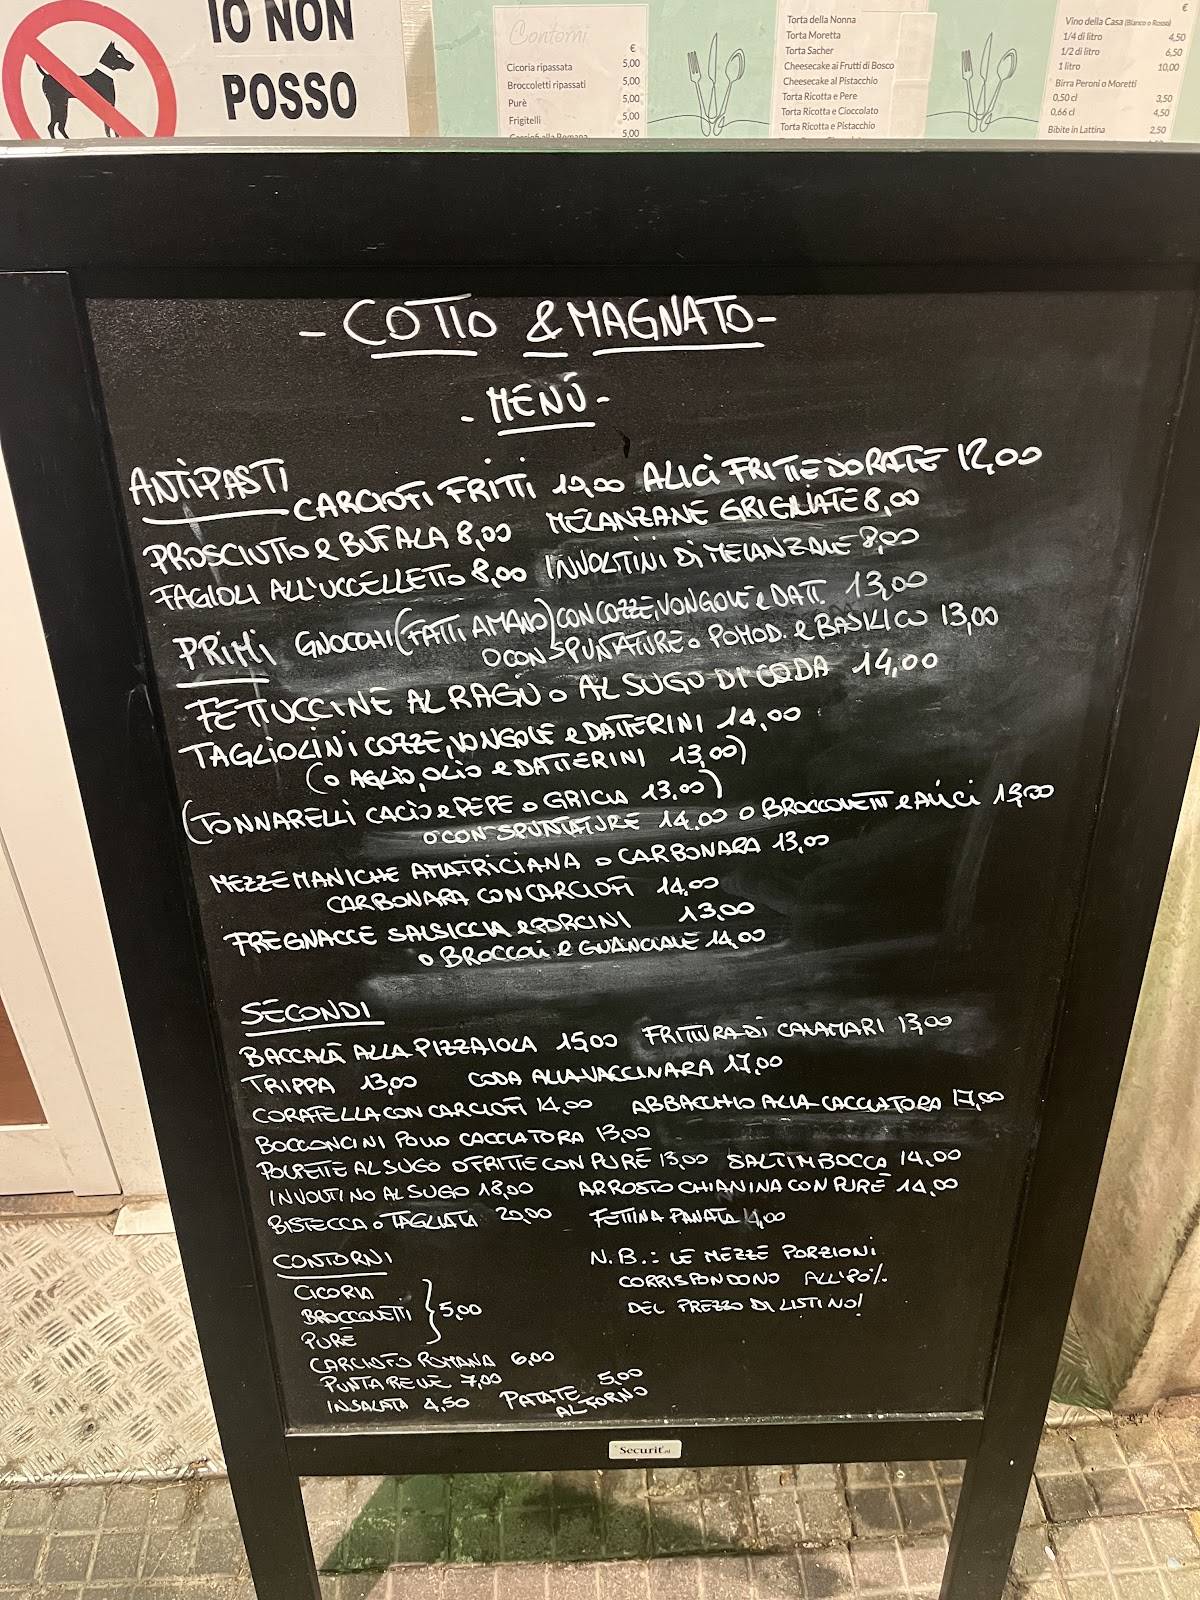 IO NON
POSSO
Contorni
€
Cicoria ripassata 5,00
Broccoletti ripassati 5,00
Purè 5,00
Frigitelli 5,00
5,00
Torta della Nonna
Torta Moretta
Torta Sacher
Cheesecake ai Frutti di Bosco
Cheesecake al Pistacchio
Torta Ricotta e Pere
Torta Ricotta e Cioccolato
Torta Ricotta e Pistacchio
€
Vino della Casa (Bianco o Rosso)
1/4 di litro 4,50
1/2 di litro 6,50
1 litro 10,00
Birra Peroni o Moretti
0,50 cl 3,50
0,66 cl 4,50
Bibite in Lattina 2,50
- COTTO & MAGNATO -
- MENÚ -
ANTIPASTI
CARCIOFI FRITTI 10,00 ALICI FRITTE DORATE 12,00
PROSCIUTTO e BUFALA 8,00 MELANZANE GRIGLIATE 8,00
FAGIOLI ALL'UCCELLETTO 8,00 INVOLTINI DI MELANZANE 8,00
PRIMI GNOCCHI (FATTI A MANO) CON COZZE, VONGOLE e DATT. 13,00
O CON SPUNTATURE o POMOD. e BASILICO 13,00
FETTUCCINE AL RAGÙ o AL SUGO DI CODA 14,00
TAGLIOLINI COZZE, VONGOLE e DATTERINI 14,00
(O AGLIO, OLIO e DATTERINI 13,00)
(TONNARELLI CACIO e PEPE o GRICIA 13,00)
O CON SPUNTATURE 14,00 o BROCCOLETTI e ALICI 13,00
MEZZEMANICHE AMATRICIANA o CARBONARA 13,00
CARBONARA CON CARCIOFI 14,00
FREGNACCE SALSICCIA e PORCINI 13,00
o BROCCOLI e GUANCIALE 14,00
SECONDI
BACCALÀ ALLA PIZZAIOLA 15,00 FRITTURA DI CALAMARI 13,00
TRIPPA 13,00 CODA ALLA VACCINARA 17,00
CORATELLA CON CARCIOFI 14,00 ABBACCHIO ALLA CACCIATORA 17,00
BOCCONCINI POLLO CACCIATORA 13,00
POLPETTE AL SUGO O FRITTE CON PURÈ 13,00 SALTIMBOCCA 14,00
INVOLTINO AL SUGO 18,00 ARROSTO CHIANINA CON PURÈ 14,00
BISTECCA o TAGLIATA 20,00 FETTINA PANATA 14,00
CONTORNI
CICORIA
BROCCOLETTI } 5,00
PURÈ
CARCIOFO ROMANA 6,00
PUNTARELLE 7,00
INSALATA 4,50 PATATE AL FORNO 5,00
N.B.: LE MEZZE PORZIONI
CORRISPONDONO ALL'80%
DEL PREZZO DI LISTINO!
Securit